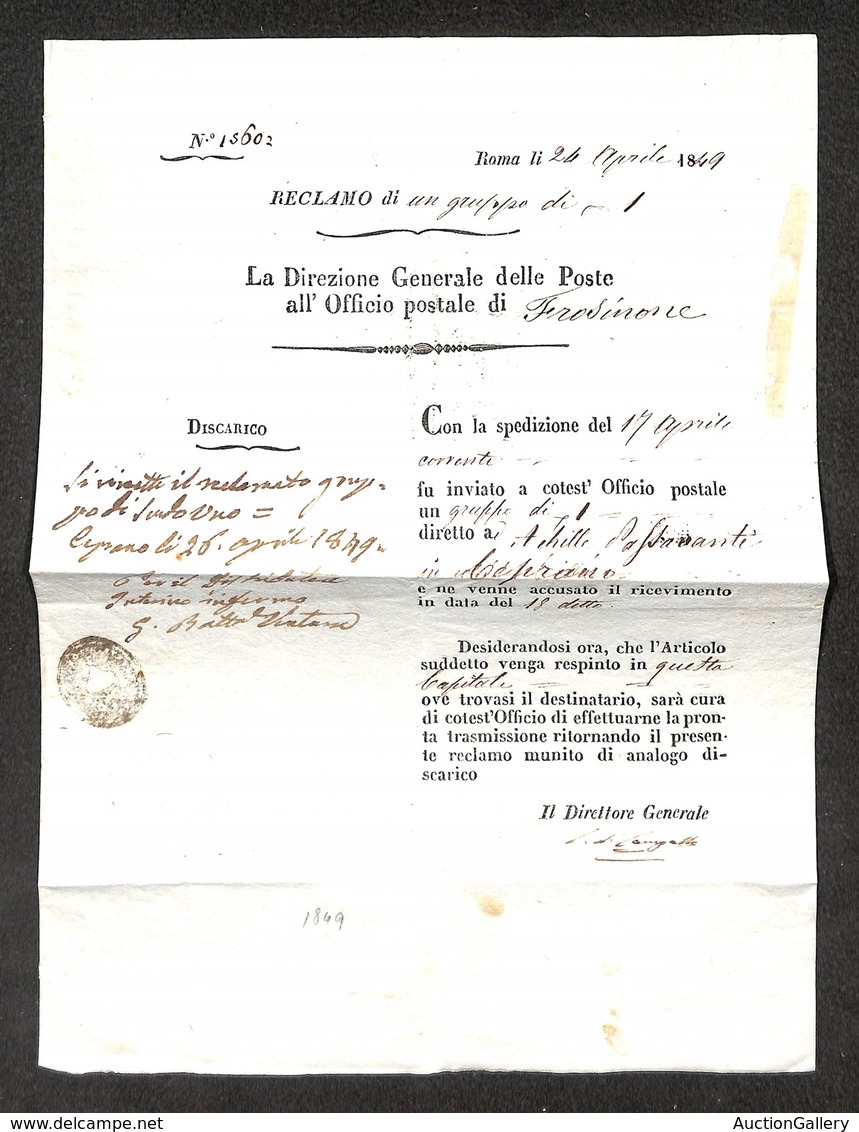 N.º 15602
Roma li 24 Aprile 1849
RECLAMO di un gruppo di 1
La Direzione Generale delle Poste
all' Officio postale di Frosinone
DISCARICO
Si rimette il reclamato grup-
po di Scudo Uno =
Ceprano li 26. aprile 1849
infermo
G. Batta
Con la spedizione del 17 Aprile
corrente
fu inviato a cotest' Officio postale
un gruppo di 1
diretto a Achille Passavanti
in Ceprano
e ne venne accusato il ricevimento
in data del 18 detto
Desiderandosi ora, che l'Articolo
suddetto venga respinto in questa
Capitale
ove trovasi il destinatario, sarà cura
di cotest'Officio di effettuarne la pron-
ta trasmissione ritornando il presen-
te reclamo munito di analogo di-
scarico
Il Direttore Generale
1849
AuctionGallery